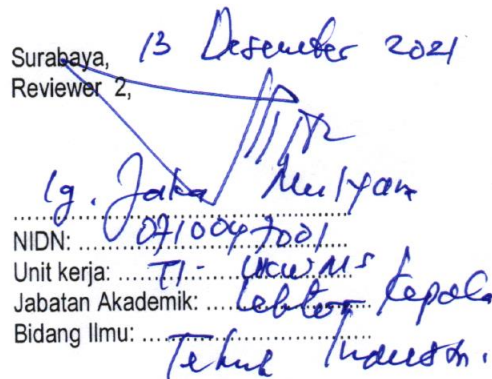 Surabaya, 13 Desember 2021
Reviewer 2,
Ig. Jaka Mulyana
NIDN: 0710047001
Unit kerja: TI - UKWMS
Jabatan Akademik: Lektor Kepala
Bidang Ilmu: Teknik Industri.